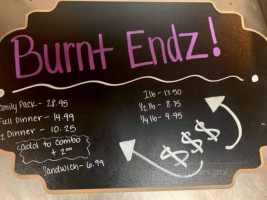 Burnt Endz!
amily Pack - 28.95
Full Dinner - 14.99
½ Dinner - 10.25
add to combo
+ 2.00
Sandwich - 6.99
1 lb - 17.50
½ lb - 8.75
¼ lb - 4.95
$$$